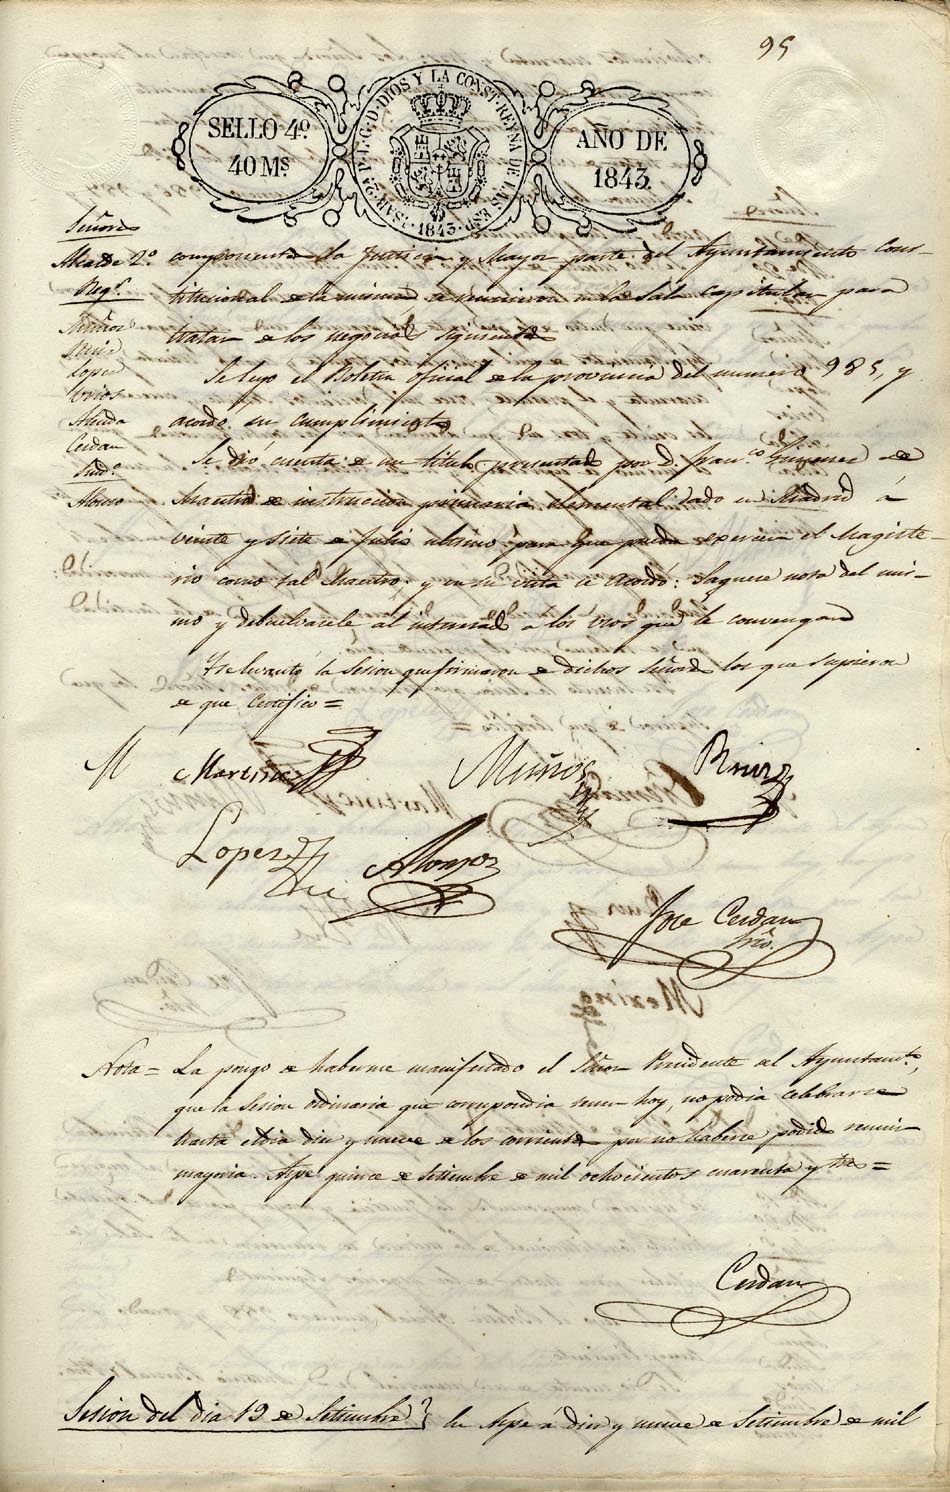 95
SELLO 4º.
40 Ms.
ISAB. 2ª. P. L. G. D. DIOS Y LA CONST. REYNA DE LAS ESP.
1843.
AÑO DE
1843.
Señores
Alcalde 2.º
Reg.s
Muñoz
Ruiz
Lopez
Cerdan
Sind.º
Alonso
componentes la Justicia y Mayor parte del Ayuntamiento Cons-
titucional de la misma se reunieron en la Sala Capitular para
tratar de los negocios siguientes
Se leyo el Boletin oficial de la provincia del numero 985, y
acordó su cumplimiento
Se dió cuenta de un titulo presentado por D. Fran.co Gimenez de
Maestro de instruccion primaria elemental dado en Madrid á
veinte y siete de Julio ultimo para que pueda exercer el Magiste-
rio como tal Maestro, y en su vista se acordó: Saquese nota del mis-
mo y debuelvasele al interesado a los usos que le convengan
Y se levantó la Sesion que firmaron de dichos Señores los que supieron
de que Certifico=
M
Martinez
Muñoz
Ruiz
Lopez
Alonso
Jose Cerdan
Srio.
Nota= La pongo de haberme manifestado el Señor Presidente del Ayuntam.to,
que la Sesion ordinaria que correspondia tener hoy, no podia celebrarse
hasta el dia diez y nueve de los corrientes por no haberse podido reunir
mayoria. Aspe quince de Setiembre de mil ochocientos cuarenta y tres=
Cerdan
Sesion del dia 19 de Setiembre} En Aspe á diez y nueve de Setiembre de mil